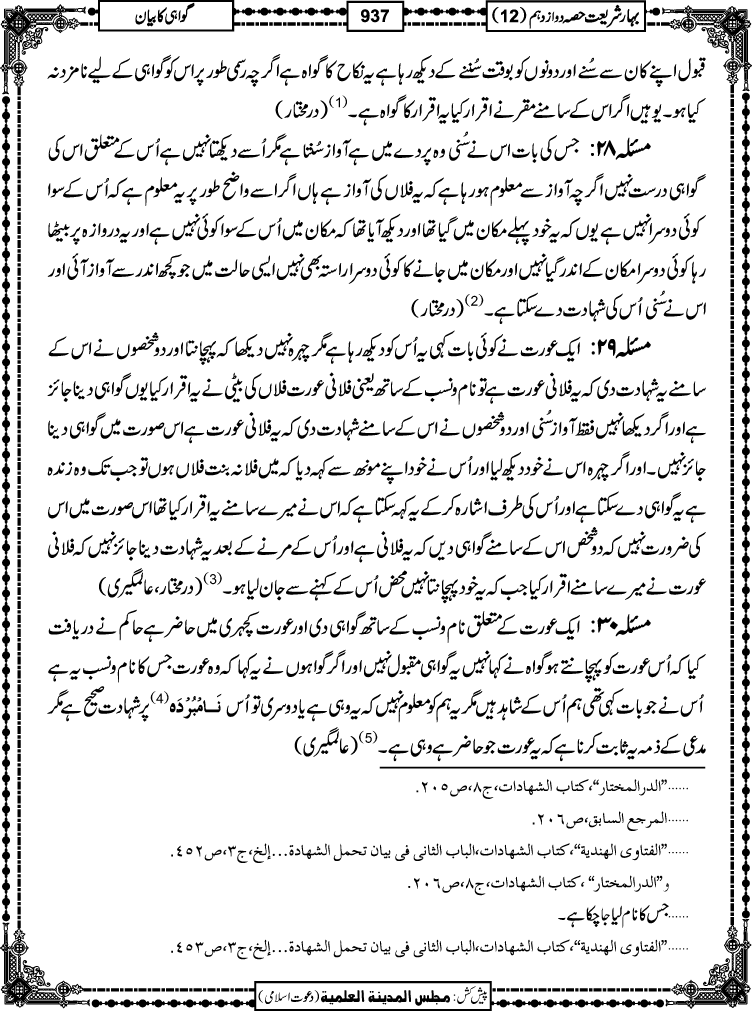 بہارِ شریعت حصہ دوازدہم (12)
937
گواہی کا بیان
قبول اپنے کان سے سُنے اور دونوں کو بوقت سُننے کے دیکھ رہا ہے یہ نکاح کا گواہ ہے اگرچہ رسمی طور پر اس کو گواہی کے لیے نامزد نہ
کیا ہو۔ یوہیں اگر اس کے سامنے مقر نے اقرار کیا یہ اقرار کا گواہ ہے۔(1) (درمختار)
مسئلہ ۲۸: جس کی بات اس نے سُنی وہ پردے میں ہے آواز سُنتا ہے مگر اُسے دیکھتا نہیں ہے اُس کے متعلق اس کی
گواہی درست نہیں اگرچہ آواز سے معلوم ہو رہا ہے کہ یہ فلاں کی آواز ہے ہاں اگر اسے واضح طور پر یہ معلوم ہے کہ اُس کے سوا
کوئی دوسرا نہیں ہے یوں کہ یہ خود پہلے مکان میں گیا تھا اور دیکھ آیا تھا کہ مکان میں اُس کے سوا کوئی نہیں ہے اور یہ دروازہ پر بیٹھا
رہا کوئی دوسرا مکان کے اندر گیا نہیں اور مکان میں جانے کا کوئی دوسرا راستہ بھی نہیں ایسی حالت میں جو کچھ اندر سے آواز آئی اور
اس نے سُنی اُس کی شہادت دے سکتا ہے۔(2) (درمختار)
مسئلہ ۲۹: ایک عورت نے کوئی بات کہی یہ اُس کو دیکھ رہا ہے مگر چہرہ نہیں دیکھا کہ پہچانتا اور دو شخصوں نے اس کے
سامنے یہ شہادت دی کہ یہ فلانی عورت ہے تو نام و نسب کے ساتھ یعنی فلانی عورت فلاں کی بیٹی نے یہ اقرار کیا یوں گواہی دینا جائز
ہے اور اگر دیکھا نہیں فقط آواز سُنی اور دو شخصوں نے اس کے سامنے شہادت دی کہ یہ فلانی عورت ہے اس صورت میں گواہی دینا
جائز نہیں۔ اور اگر چہرہ اس نے خود دیکھ لیا اور اُس نے خود اپنے مونھ سے کہہ دیا کہ میں فلانہ بنت فلاں ہوں تو جب تک وہ زندہ
ہے یہ گواہی دے سکتا ہے اور اُس کی طرف اشارہ کر کے یہ کہہ سکتا ہے کہ اس نے میرے سامنے یہ اقرار کیا تھا اس صورت میں اس
کی ضرورت نہیں کہ دو شخص اس کے سامنے گواہی دیں کہ یہ فلانی ہے اور اُس کے مرنے کے بعد یہ شہادت دینا جائز نہیں کہ فلانی
عورت نے میرے سامنے اقرار کیا جب کہ یہ خود پہچانتا نہیں محض اُس کے کہنے سے جان لیا ہو۔(3) (درمختار، عالمگیری)
مسئلہ ۳۰: ایک عورت کے متعلق نام و نسب کے ساتھ گواہی دی اور عورت کچہری میں حاضر ہے حاکم نے دریافت
کیا کہ اُس عورت کو پہچانتے ہو گواہ نے کہا نہیں یہ گواہی مقبول نہیں اور اگر گواہوں نے یہ کہا کہ وہ عورت جس کا نام و نسب یہ ہے
اُس نے جو بات کہی تھی ہم اُس کے شاہد ہیں مگر یہ ہم کو معلوم نہیں کہ یہ وہی ہے یا دوسری تو اُس نَامْبُرْدَہ(4) پر شہادت صحیح ہے مگر
مدعی کے ذمہ یہ ثابت کرنا ہے کہ یہ عورت جو حاضر ہے وہی ہے۔(5) (عالمگیری)
......"الدرالمختار"،کتاب الشھادات،ج۸،ص۲۰۵.
......المرجع السابق،ص۲۰۶.
......"الفتاوی الھندیة"،کتاب الشھادات،الباب الثانی فی بیان تحمل الشھادة...إلخ،ج۳،ص۴۵۲.
و"الدرالمختار" ،کتاب الشھادات،ج۸،ص۲۰۶.
......جس کا نام لیا جا چکا ہے۔
......"الفتاوی الھندیة"،کتاب الشھادات،الباب الثانی فی بیان تحمل الشھادة...إلخ،ج۳،ص۴۵۳.
پیش کش: مجلس المدینة العلمیة (دعوت اسلامی)